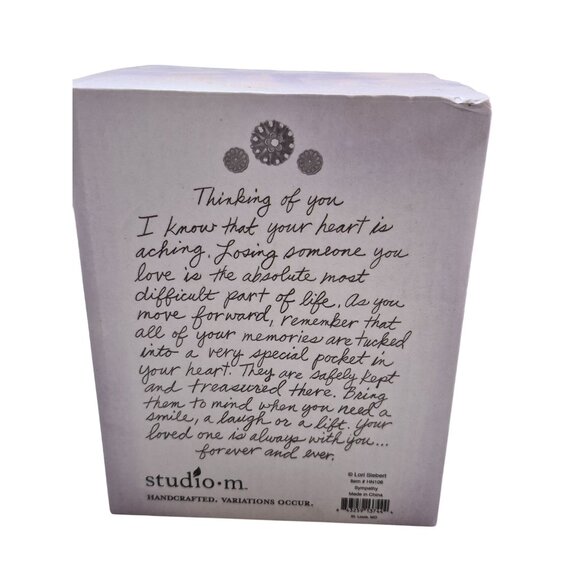 Thinking of you
I know that your heart is
aching. Losing someone you
love is the absolute most
difficult part of life. As you
move forward, remember that
all of your memories are tucked
into a very special pocket in
your heart. They are safely kept
and treasured there. Bring
them to mind when you need a
smile, a laugh or a lift. Your
loved one is always with you...
forever and ever.
studio·m™
HANDCRAFTED. VARIATIONS OCCUR.
© Lori Siebert
Item # HN106
Sympathy
Made in China
St. Louis, MO